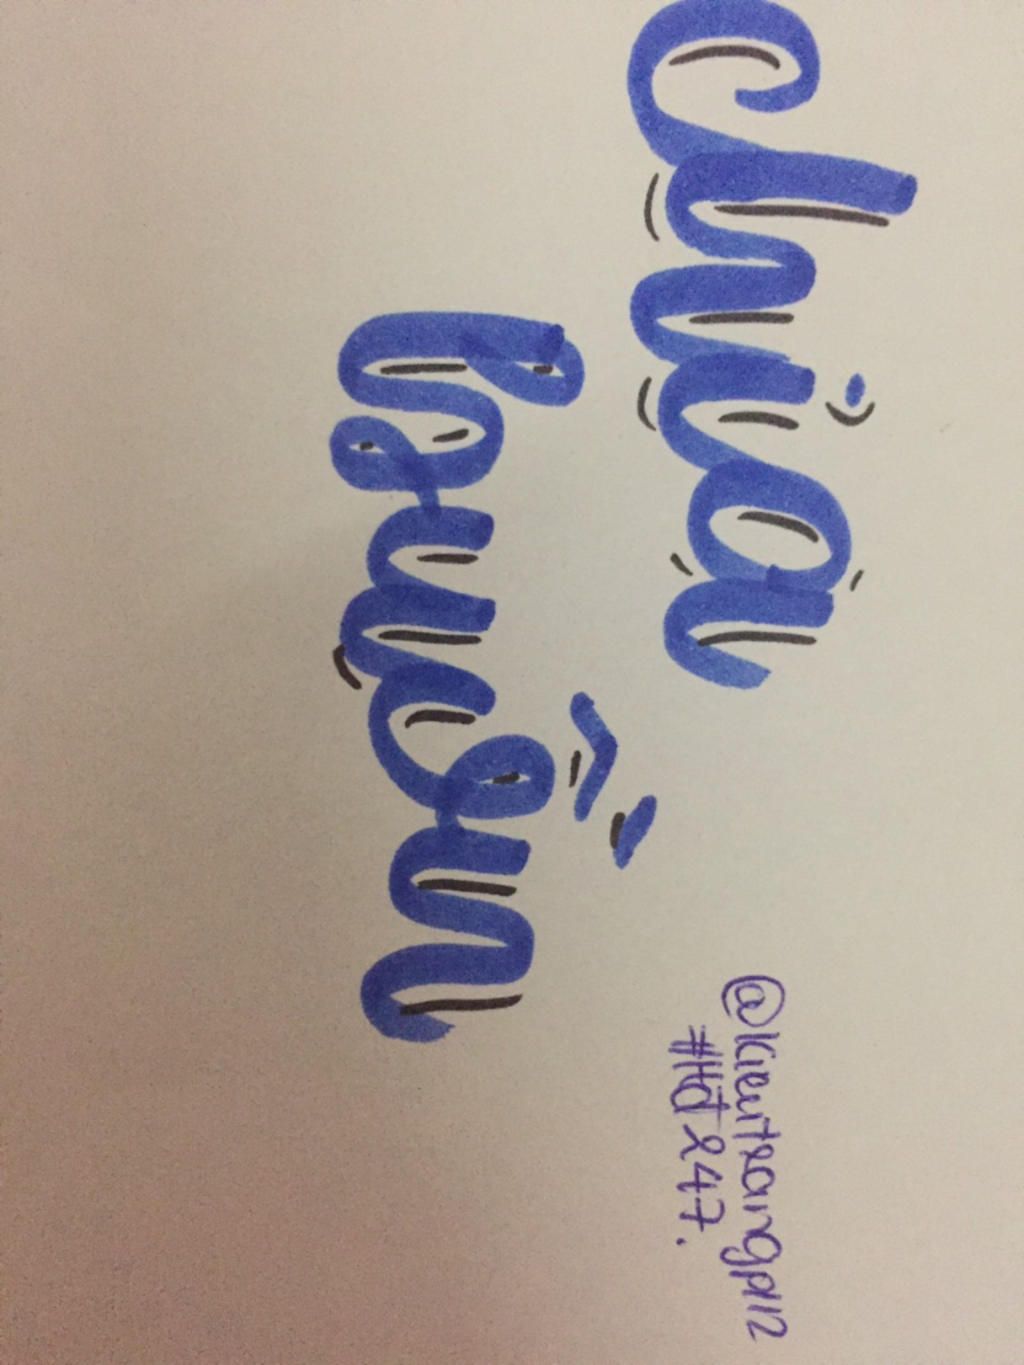 chia
buồn
@kieutrangp112
#Hđ247.